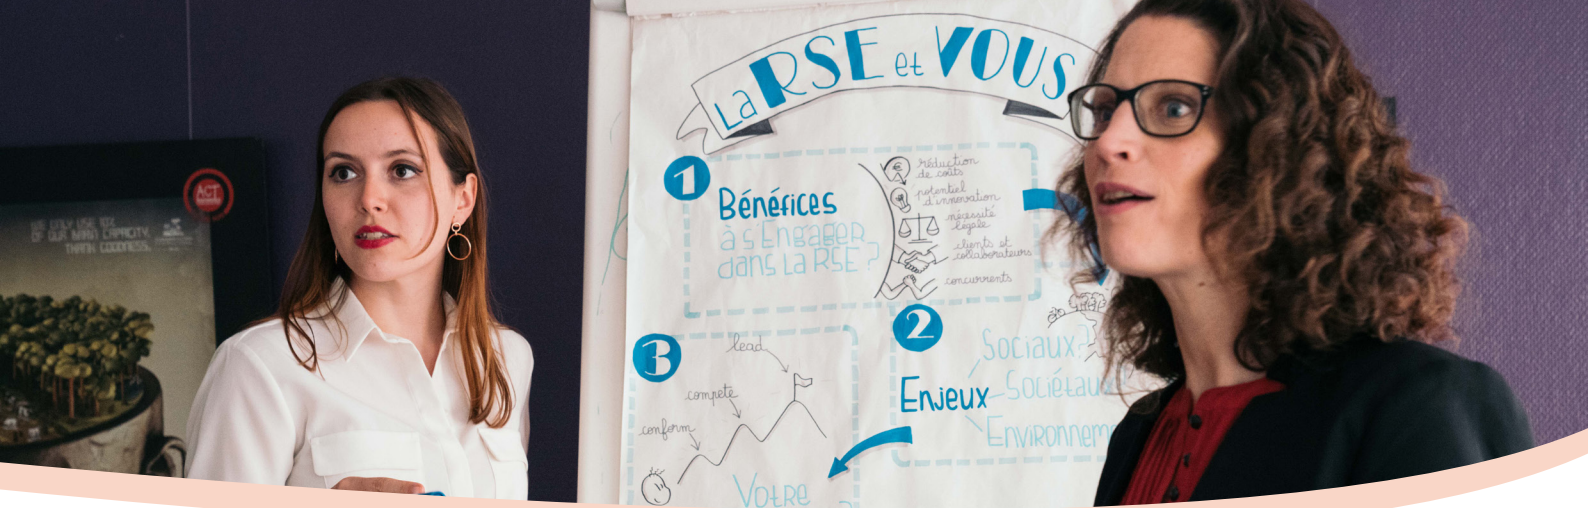 La RSE et VOUS
1
Bénéfices
à s'Engager
dans la RSE ?
réduction
de coûts
potentiel
d'innovation
nécessité
légale
clients et
collaborateurs
concurrents
2
Enjeux
Sociaux?
Sociétaux
Environnem
3
lead
compete
conform
Votre
?
ACT
WE ONLY USE 10%
OF OUR BRAIN CAPACITY.
THANK GOODNESS.